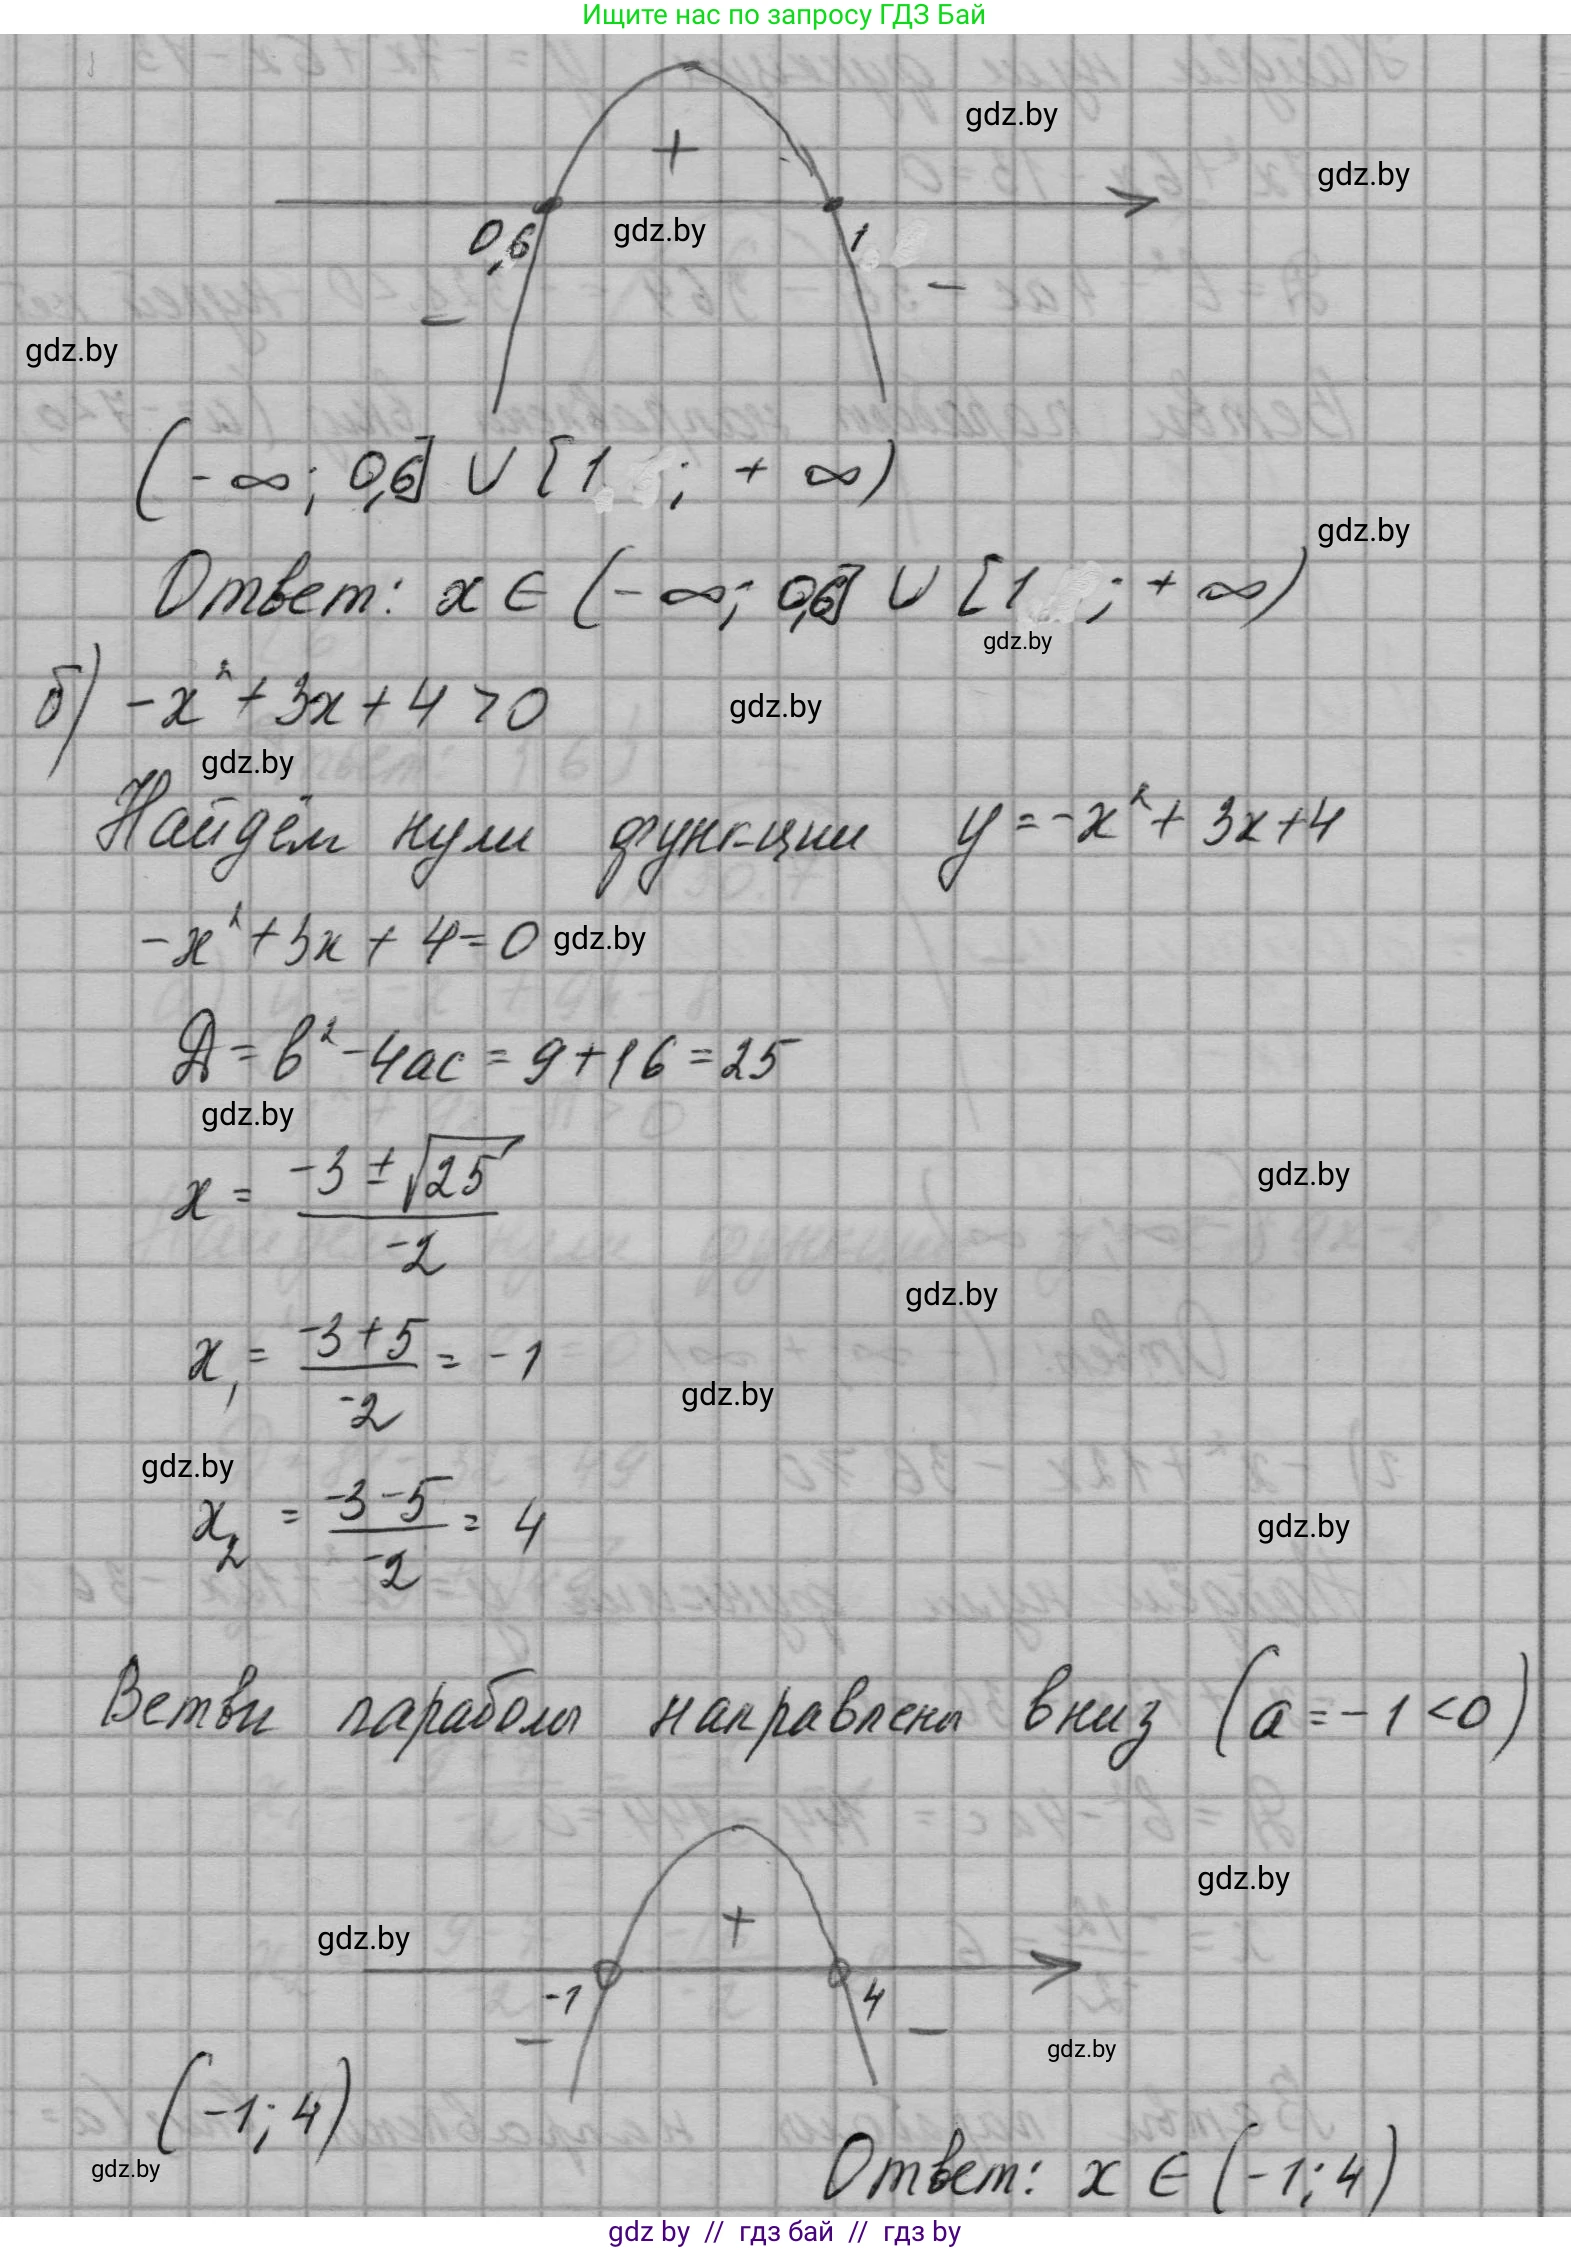 Ищите нас по запросу ГДЗ Бай
gdz.by
+
gdz.by
0,6
gdz.by
1
-
-
gdz.by
(-∞; 0,6] ∪ [1; +∞)
gdz.by
Ответ: x ∈ (-∞; 0,6] ∪ [1; +∞)
gdz.by
б) -x² + 3x + 4 > 0
gdz.by
gdz.by
Найдём нули функции y = -x² + 3x + 4
-x² + 3x + 4 = 0
gdz.by
Д = b² - 4ac = 9 + 16 = 25
gdz.by
x = (-3 ± √25) / -2
gdz.by
gdz.by
x₁ = (-3 + 5) / -2 = -1
gdz.by
gdz.by
x₂ = (-3 - 5) / -2 = 4
gdz.by
Ветви параболы направлены вниз (a = -1 < 0)
gdz.by
+
gdz.by
-1
4
-
-
gdz.by
(-1; 4)
gdz.by
Ответ: x ∈ (-1; 4)
gdz by // гдз бай // гдз by